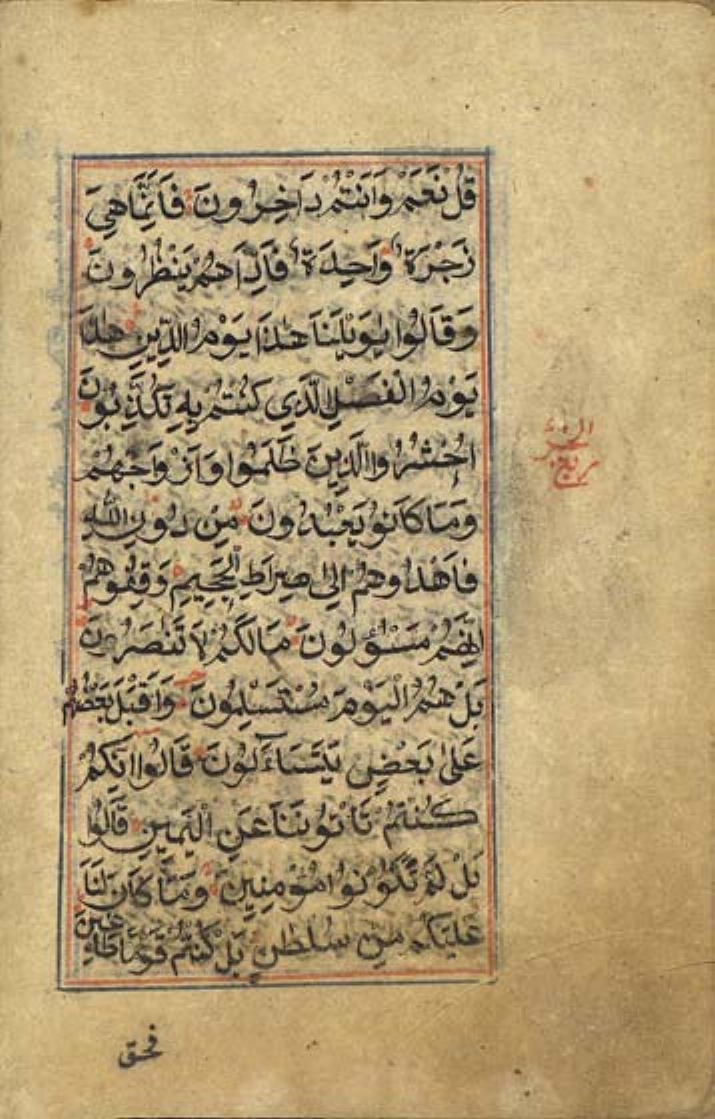 قُلْ نَعَمْ وَاَنْتُمْ دَاخِرُونَ فَاِنَّمَا هِيَ
زَجْرَةٌ وَاحِدَةٌ فَاِذَا هُمْ يَنْظُرُونَ
وَقَالُوا يٰوَيْلَنَا هٰذَا يَوْمُ الدِّينِ هٰذَا
يَوْمُ الْفَصْلِ الَّذِي كُنْتُمْ بِهِ تُكَذِّبُونَ
اُحْشُرُوا الَّذِينَ ظَلَمُوا وَاَزْوَاجَهُمْ
وَمَا كَانُو يَعْبُدُونَ مِنْ دُونِ اللّٰهِ
فَاهْدُوهُمْ اِلٰى صِرَاطِ الْجَحِيمِ وَقِفُوهُمْ
اِنَّهُمْ مَسْؤُلُونَ مَالَكُمْ لَا تَنَاصَرُونَ
بَلْ هُمُ الْيَوْمَ مُسْتَسْلِمُونَ وَاَقْبَلَ بَعْضُهُمْ
عَلٰى بَعْضٍ يَتَسَآءَلُونَ قَالُوا اِنَّكُمْ
كُنْتُمْ تَاْتُونَنَا عَنِ الْيَمِينِ قَالُوا
بَلْ لَمْ تَكُونُوا مُؤْمِنِينَ وَمَا كَانَ لَنَا
عَلَيْكُمْ مِنْ سُلْطٰنٍ بَلْ كُنْتُمْ قَوْمًا طَاغِينَ
فحق